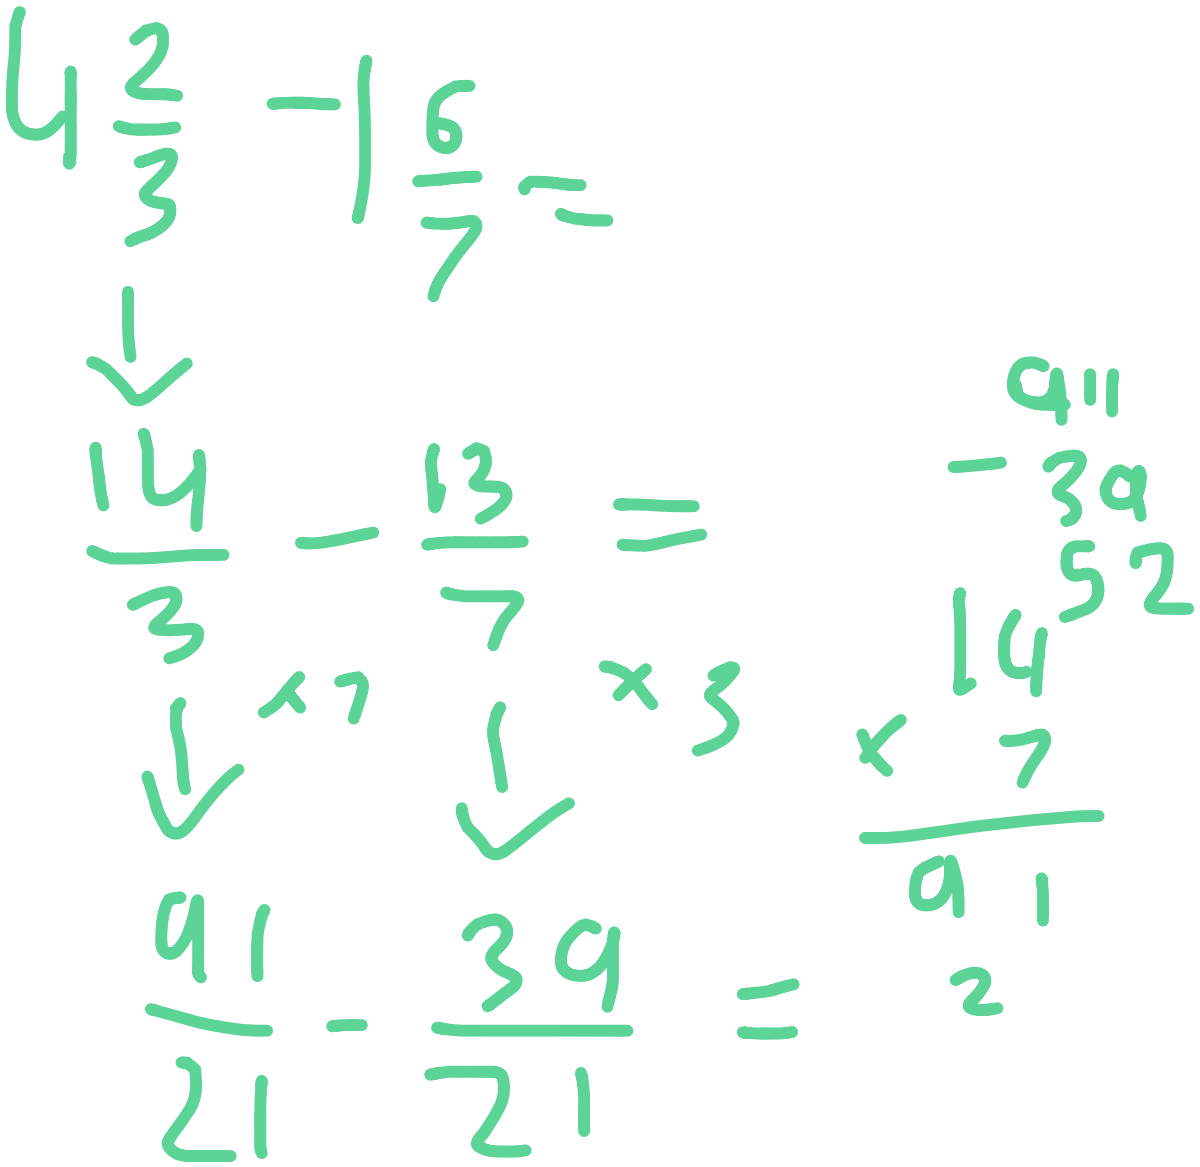 4 2/3 - 1 6/7 =
↓
14/3 - 13/7 =
↓ x7 ↓ x3
91/21 - 39/21 =
911
- 39
52
14
x 7
91
2